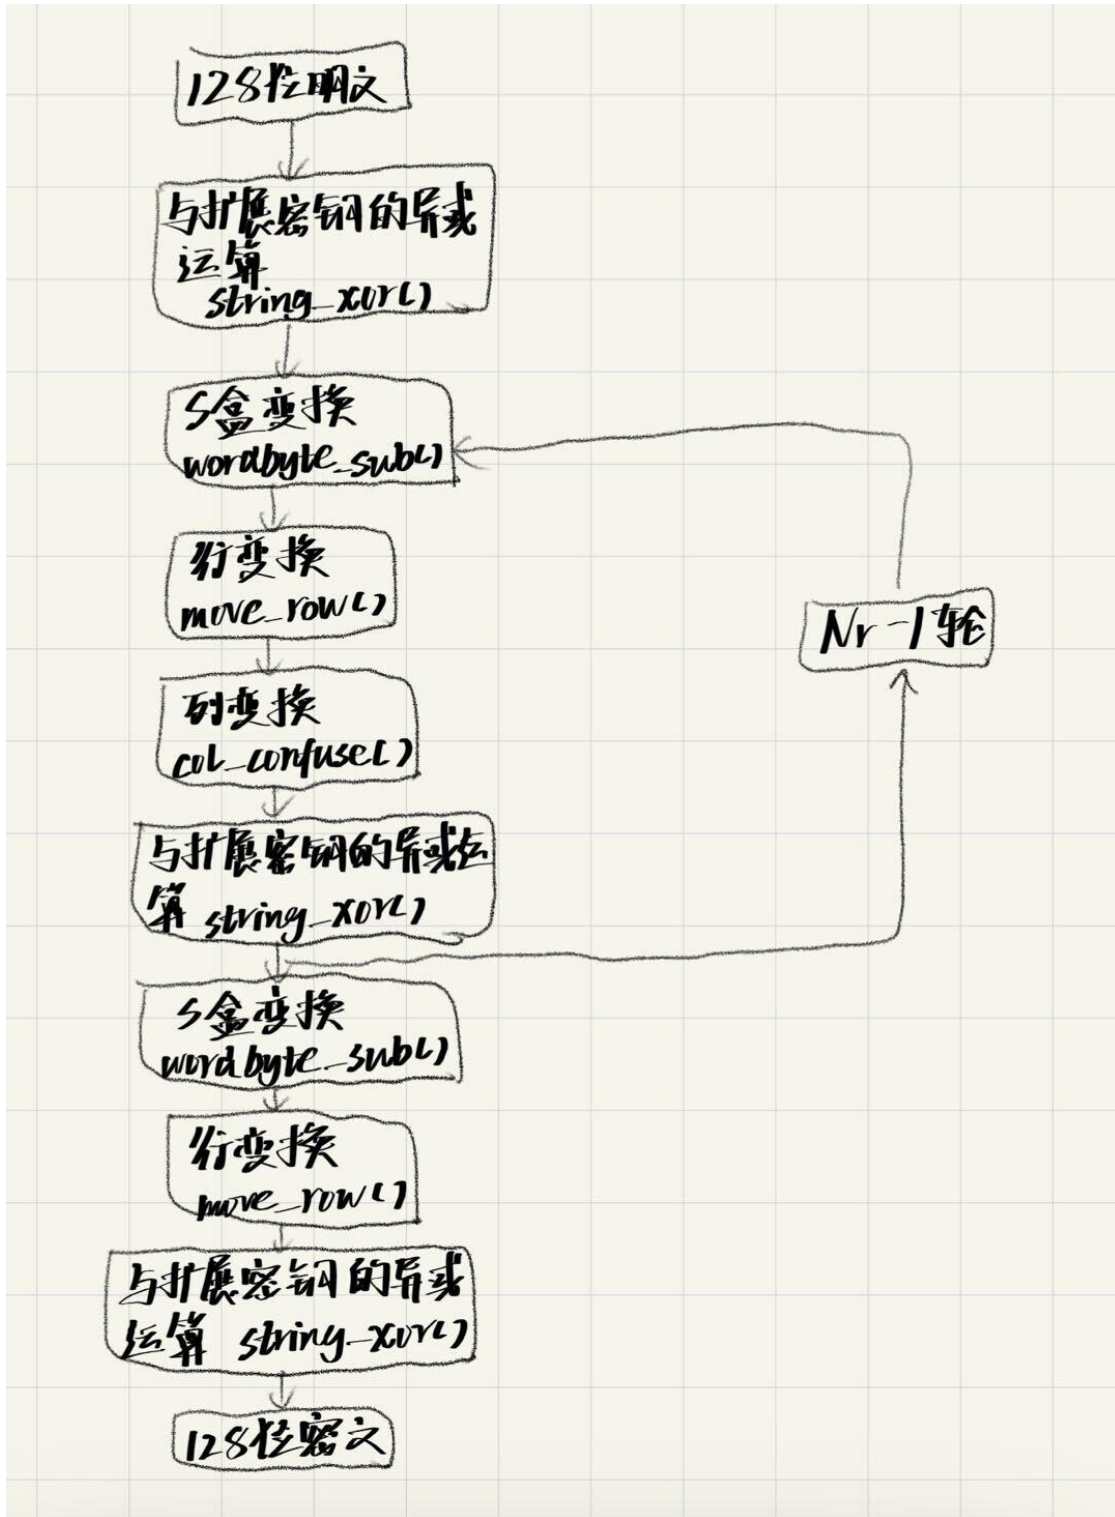 128位明文
与扩展密钥的异或
运算
string_xor()
S盒变换
wordbyte_sub()
行变换
move_row()
列变换
col_confuse()
与扩展密钥的异或运
算 string_xor()
Nr-1轮
S盒变换
wordbyte_sub()
行变换
move_row()
与扩展密钥的异或
运算 string_xor()
128位密文